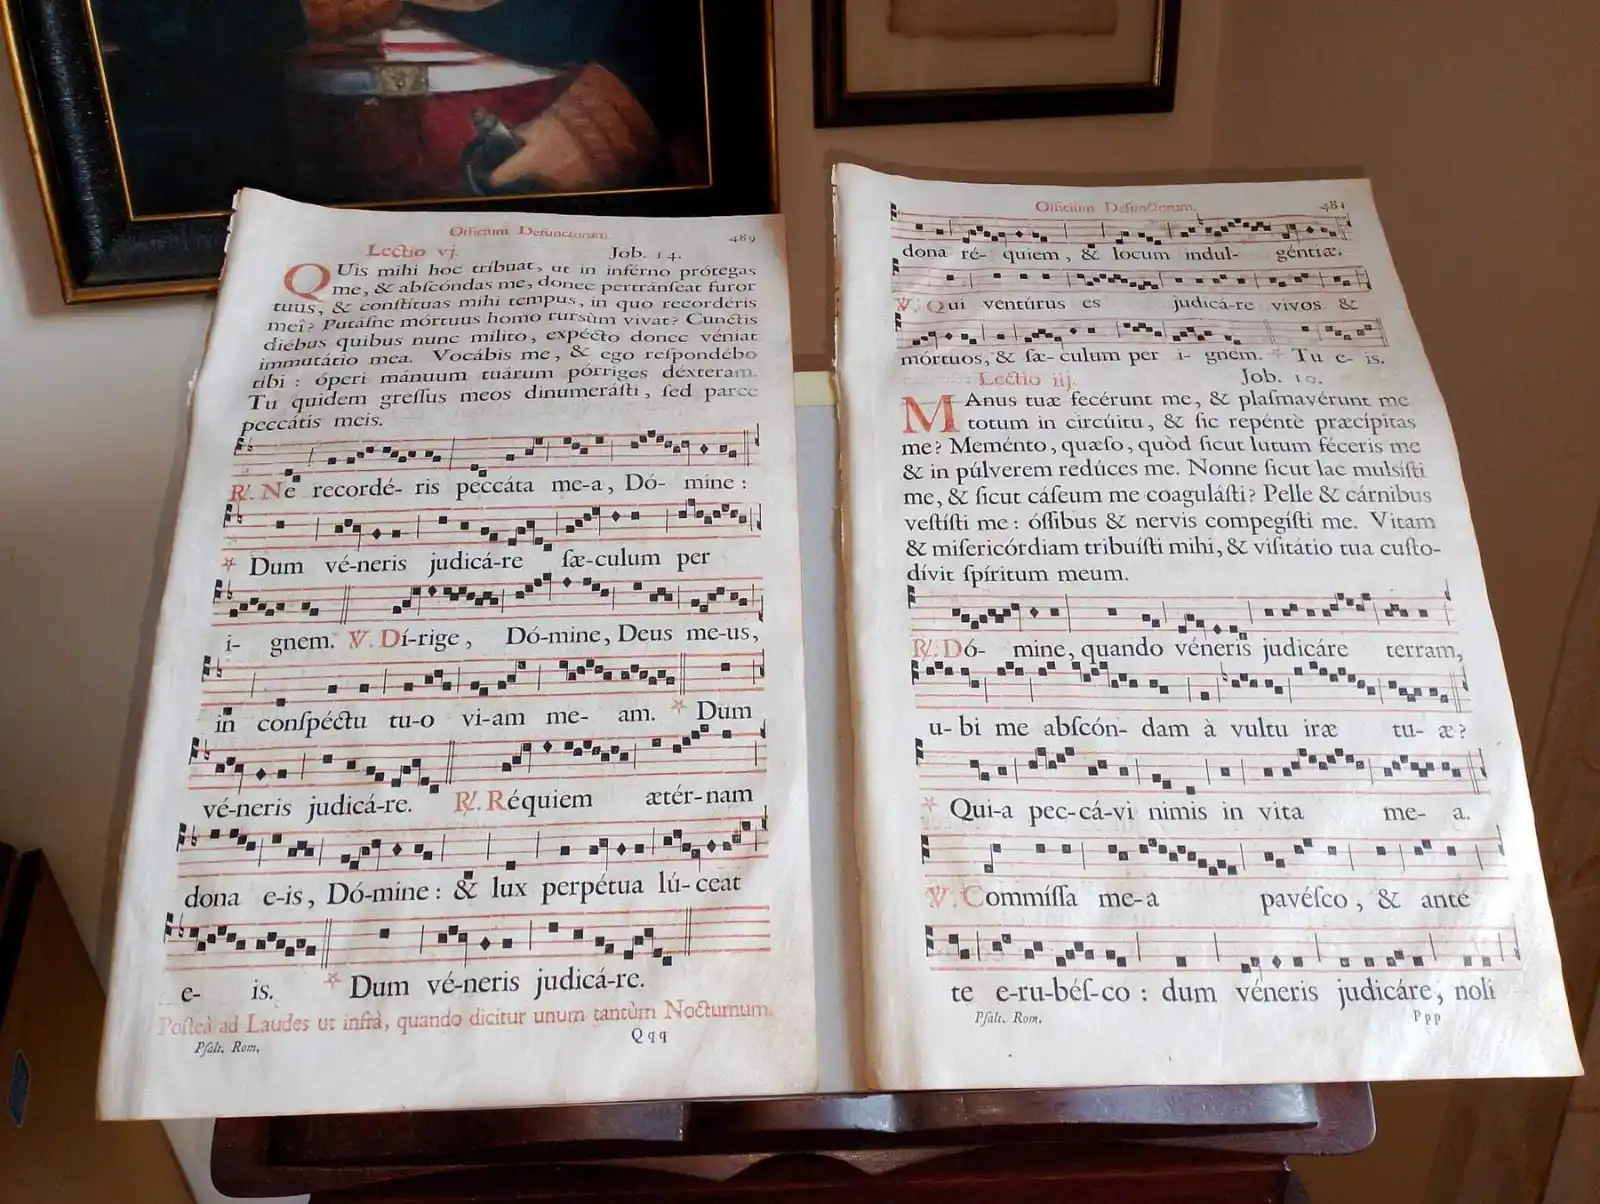 Officium Defunctorum.
489
Lectio vj. Job. 14.
QUis mihi hoc tríbuat, ut in inférno prótegas
me, & abſcóndas me, donec pertránſeat furor
tuus, & conſtítuas mihi tempus, in quo recordéris
meî? Putáſne mórtuus homo rursùm vivat? Cunctis
diébus quibus nunc mílito, expécto donec véniat
immutátio mea. Vocábis me, & ego reſpondébo
tibi : óperi mánuum tuárum pórriges déxteram.
Tu quidem greſſus meos dinumeráſti, ſed parce
peccátis meis.
℟. Ne recordé- ris peccáta me-a, Dó- mine :
* Dum vé-neris judicá-re ſæ-culum per
i- gnem. ℣. Dí-rige, Dó-mine, Deus me-us,
in conſpéctu tu-o vi-am me- am. * Dum
vé-neris judicá-re. ℟. Réquiem ætér-nam
dona e-is, Dó-mine : & lux perpétua lú-ceat
e- is. * Dum vé-neris judicá-re.
Poſteà ad Laudes ut infrà, quando dicitur unum tantùm Nocturnum.
Pſalt. Rom. Qqq
Officium Defunctorum. 481
dona ré- quiem, & locum indul- géntiæ.
℣. Qui ventúrus es judicá-re vivos &
mórtuos, & ſæ-culum per i- gnem. * Tu e- is.
Lectio iij. Job. 10.
MAnus tuæ fecérunt me, & plaſmavérunt me
totum in circúitu, & ſic repéntè præcípitas
me? Meménto, quæſo, quòd ſicut lutum féceris me
& in púlverem redúces me. Nonne ſicut lac mulsíſti
me, & ſicut cáſeum me coaguláſti? Pelle & cárnibus
veſtíſti me : óſſibus & nervis compegíſti me. Vitam
& miſericórdiam tribuíſti mihi, & viſitátio tua cuſto-
dívit ſpíritum meum.
℟. Dó- mine, quando véneris judicáre terram,
u- bi me abſcón- dam à vultu iræ tu- æ?
* Qui-a pec-cá-vi nimis in vita me- a.
℣. Commíſſa me-a pavéſco, & ante
te e-ru-béſ-co : dum véneris judicáre, noli
Pſalt. Rom. Ppp